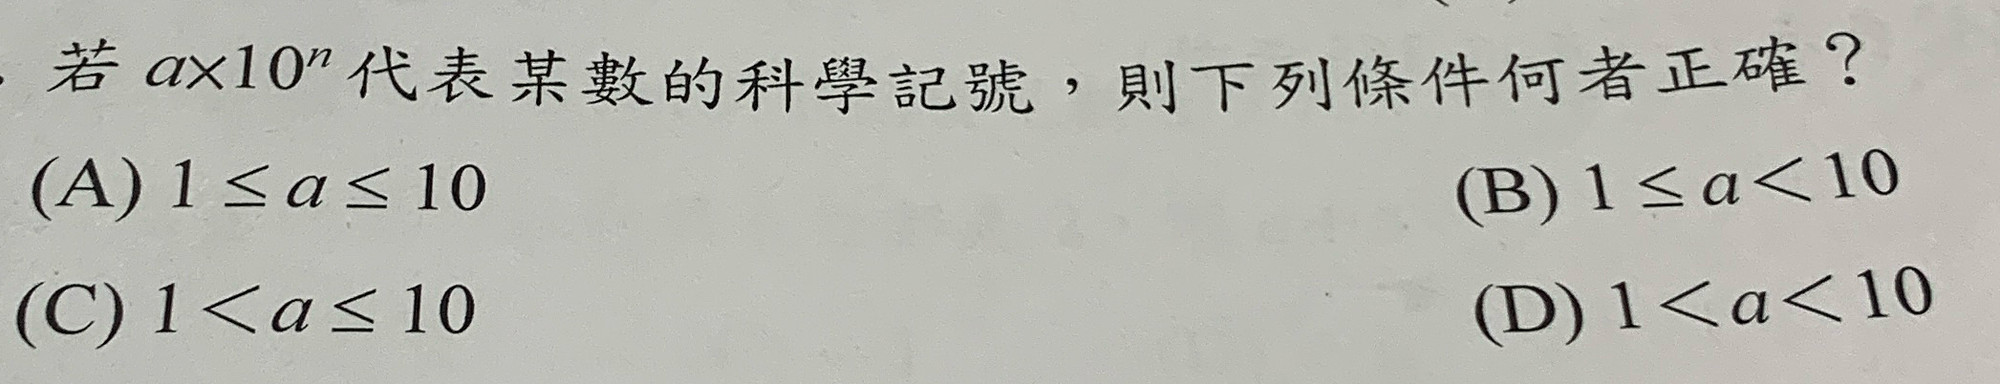 若 a×10ⁿ 代表某數的科學記號，則下列條件何者正確？
(A) 1 ≤ a ≤ 10 (B) 1 ≤ a < 10
(C) 1 < a ≤ 10 (D) 1 < a < 10